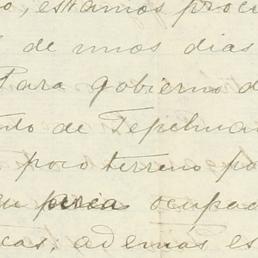 o, estamos procu
de unos dias
Para gobierno d
nto de Tepehuan
poco terreno po
ocupad
cas; ademas es